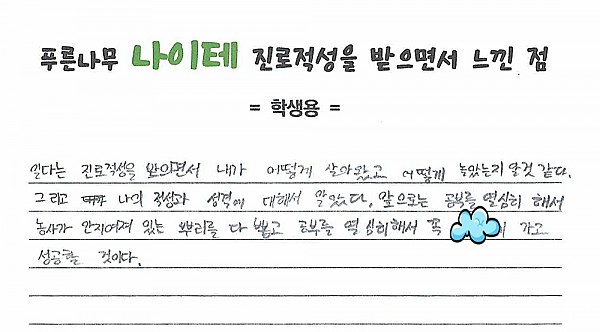 푸른나무 나이테 진로적성을 받으면서 느낀 점
= 학생용 =
일다는 진로적성을 받으면서 내가 어떻게 살아왔고 어떻게 놀았는지 알것 같다.
그리고 나의 적성과 성격에 대해서 알았다. 앞으로는 공부를 열심히 해서
농사가 안지어져 있는 뿌리를 다 뽑고 공부를 열심히해서 꼭 가고
성공할 것이다.